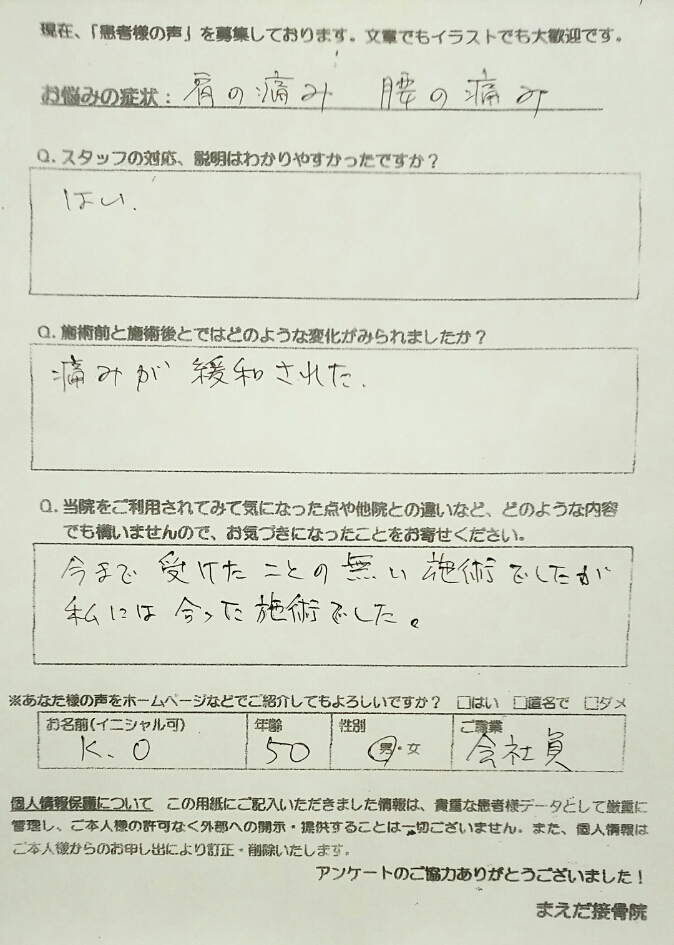 現在、「患者様の声」を募集しております。文章でもイラストでも大歓迎です。
お悩みの症状：肩の痛み　腰の痛み
Q.スタッフの対応、説明はわかりやすかったですか？
はい.
Q.施術前と施術後とではどのような変化がみられましたか？
痛みが緩和された.
Q.当院をご利用されてみて気になった点や他院との違いなど、どのような内容
でも構いませんので、お気づきになったことをお寄せください。
今まで受けたことの無い施術でしたが
私には合った施術でした。
※あなた様の声をホームページなどでご紹介してもよろしいですか？　□はい　□匿名で　□ダメ
お名前(イニシャル可)　年齢　性別　ご職業
K.O　50　男・女　会社員
個人情報保護について　この用紙にご記入いただきました情報は、貴重な患者様データとして厳重に
管理し、ご本人様の許可なく外部への開示・提供することは一切ございません。また、個人情報は
ご本人様からのお申し出により訂正・削除いたします。
アンケートのご協力ありがとうございました！
まえだ接骨院